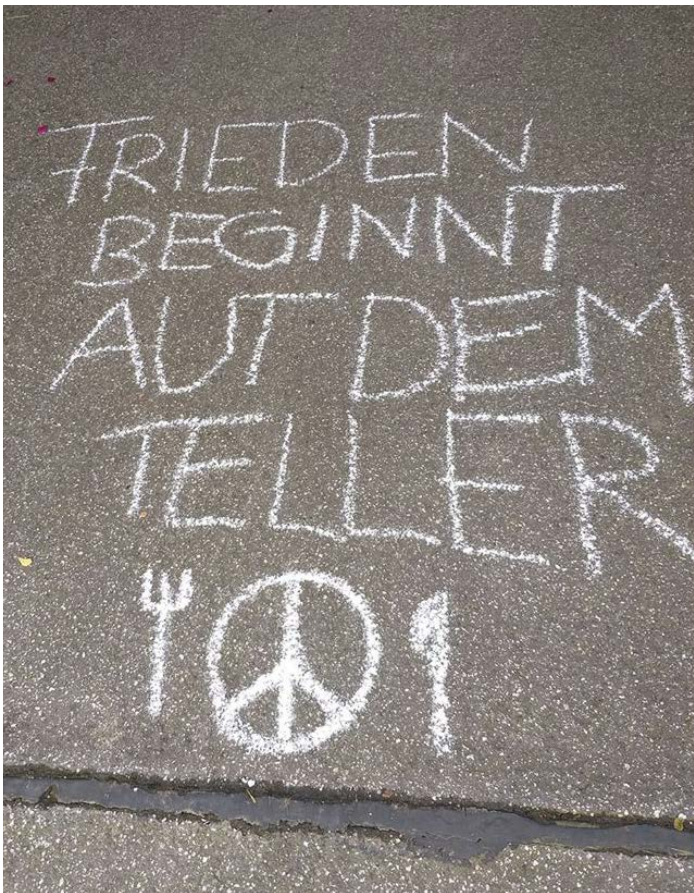 FRIEDEN
BEGINNT
AUF DEM
TELLER